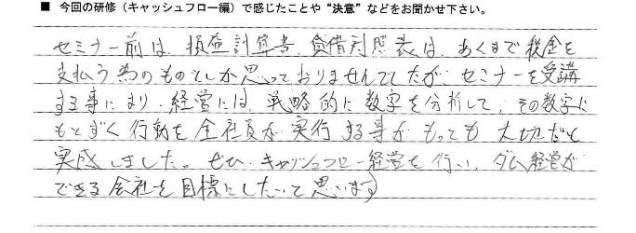 ■ 今回の研修（キャッシュフロー編）で感じたことや“決意”などをお聞かせ下さい。
セミナー前は、損益計算書、貸借対照表は、あくまで税金を
支払う為のものとしか思っておりませんでしたが、セミナーを受講
する事により、経営には、戦略的に数字を分析して、その数字に
もとずく行動を全社員が実行する事がもっても大切だと
実感しました。ぜひ、キャッシュフロー経営を行い、ダム経営が
できる会社を目標にしたいと思います